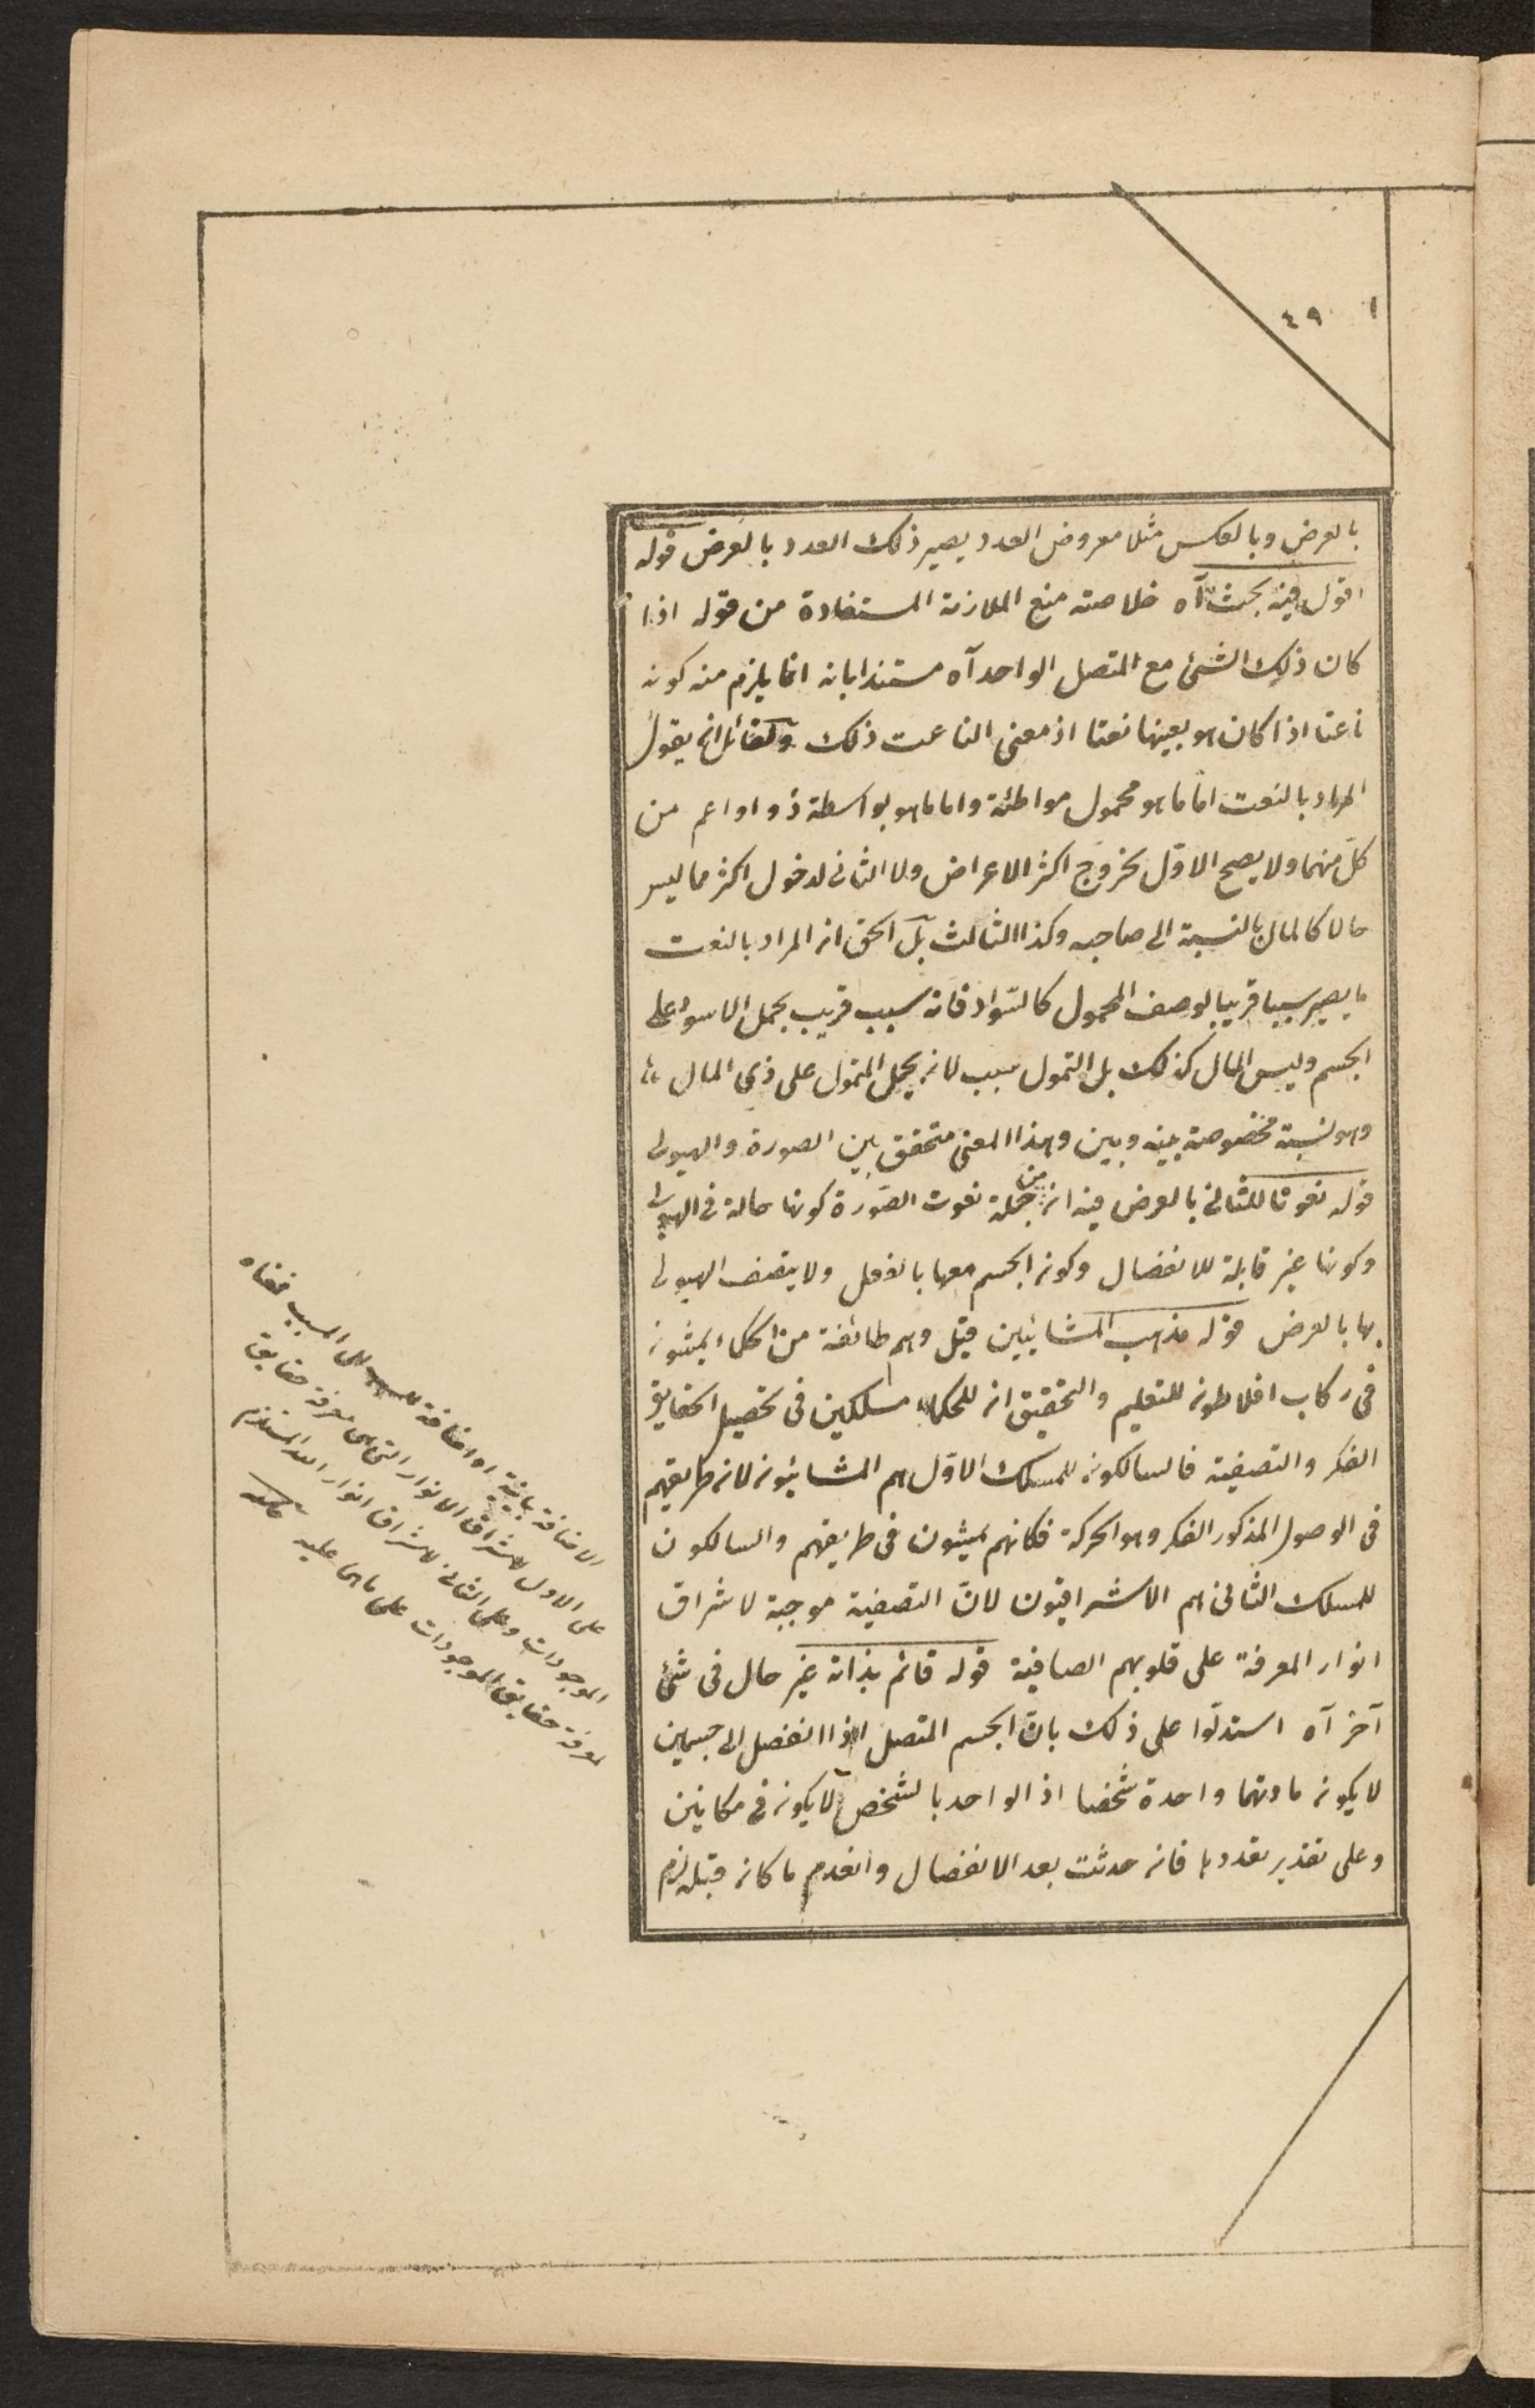 ١ ٤٩
بالعرض وبالعكس مثلا معروض العدد يصير ذلك العدد بالعرض قوله
اقول فيه بحث آه خلاصته منع الملازمة المستفادة من قوله اذا
كان ذلك الشئ مع المتصل الواحد آه مستندا بانه انما يلزم منه كونه
ناعتا اذا كان هو بعينها نعتا اذ معنى الناعت ذلك ولقائل ان يقول
المراد بالنعت امّا ما هو محمول مواطئة واما ما هو بواسطة ذو او اعم من
كلّ منهما ولا يصح الاوّل لخروج اكثر الاعراض ولا الثانى لدخول اكثر مما ليس
حالا كالمال بالنسبة الى صاحبه وكذا الثالث بل الحق ان المراد بالنعت
ما يصير سببا قريبا لوصف المحمول كالسّواد فانه سبب قريب بحمل الاسود على
الجسم وليس المال كذلك بل التمول سبب لانه يحمل المتمول على ذي المال
وهو نسبة مخصوصة بينه وبين وهذا المعنى متحقق بين الصورة والهيولى
قوله نعوتا للثانى بالعرض فيه ان من جملة نعوت الصّورة كونها حالة فى الهيولى
وكونها غير قابلة للانفصال وكون الجسم معها بالفعل ولا يتصف الهيولى
بها بالعرض قوله مذهب المشائيين قيل وهم طائفة من الحكماء يمشون
فى ركاب افلاطون للتعليم والتحقيق ان للحكماء مسلكين فى تحصيل الحقايق
الفكر والتصفية فالسالكون للمسلك الاوّل هم المشائيون لان طريقهم
فى الوصول المذكور الفكر وهو الحركة فكانهم يمشون فى طريقهم والسالكون
للمسلك الثانى هم الاشراقيون لانّ التصفية موجبة لاشراق
انوار المعرفة على قلوبهم الصافية قوله قائم بذاته غير حال فى شئ
آخر آه استدلّوا على ذلك بانّ الجسم المتصل اذا انفصل الى جسمين
لا يكون مادتهما واحدة شخصا اذ الواحد بالشخص لا يكون فى مكانين
وعلى تقدير تعددها فان حدثت بعد الانفصال وانعدم ما كان قبله لزم
الاضافة بيانية او اضافة السبب الى المسبب فمعناه
على الاول لاشراق الانوار التى هى معرفة حقايق
الموجودات وعلى الثانى لاشراق انوار الله المستلزم
لمعرفة حقايق الموجودات على ما هى عليه